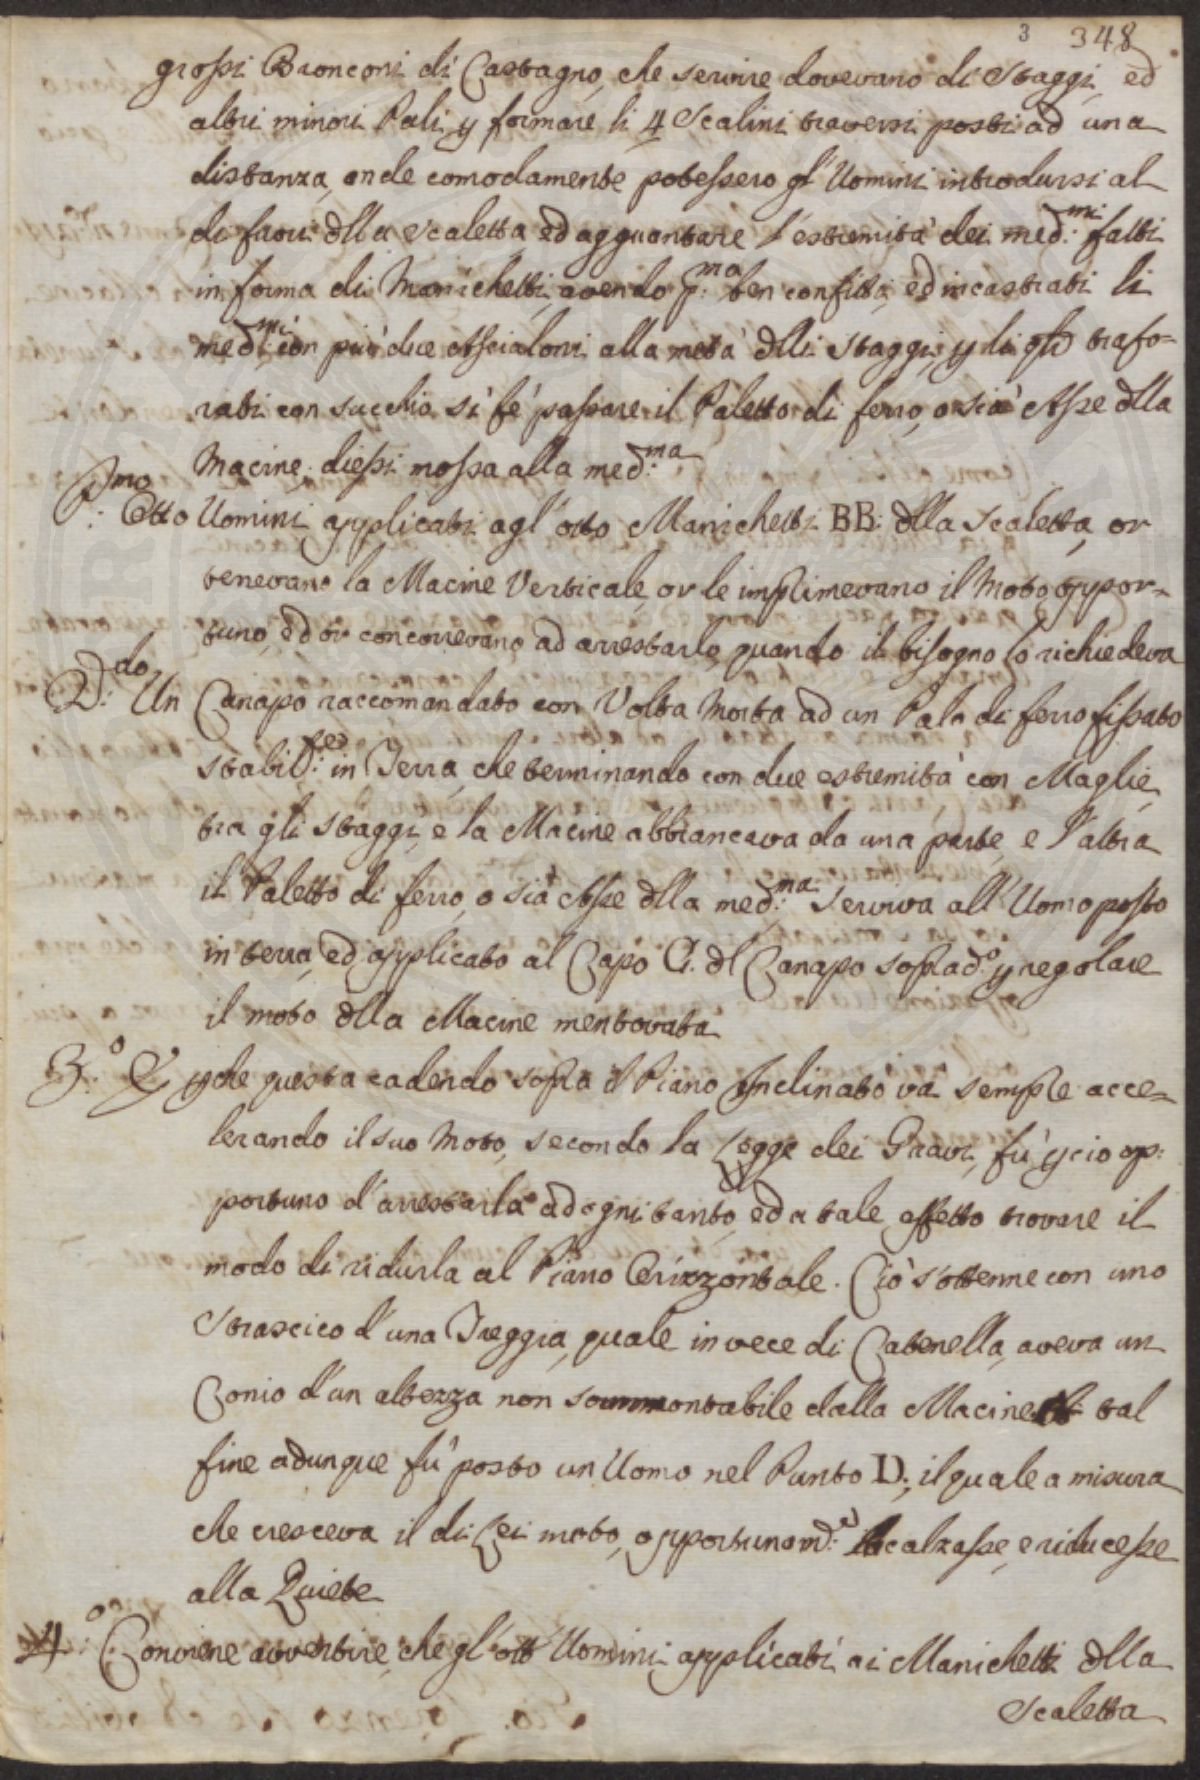 3 348
grossi Bronconi di Castagno, che servire dovevano di Staggi, ed
altri minori Pali, p formare li 4 Scalini traversi posti ad una
distanza, onde comodamente potessero gl' Uomini introdursi al
di fuori dlla Scaletta ed agguantare l'estremità dei med:mi fatti
in forma di Manichetti, avendo p:ma ben confitti, ed incastrati li
med:mi con più due Assialoni alla metà dlli Staggi, p li qli trafo=
rati con succhio si fè passare il Paletto di ferro, o sia Asse dlla
Macine, diessi mossa alla med:ma
P:mo Otto Uomini applicati agl' otto Manichetti BB: dlla Scaletta, or
tenevano la Macine Verticale, or le imprimevano il Moto oppor=
tuno, ed or concorrevano ad arrestarlo, quando il bisogno lo richiedeva
2:do Un Canapo raccomandato con Volta Morta ad un Palo di ferro fissato
stabil:te in Terra, che terminando con due estremità con Maglie,
tra gli Staggi, e la Macine abbrancava da una parte, e l'altra
il Paletto di ferro, o sia Asse dlla med:ma serviva all' Uomo posto
in terra, ed applicato al Capo C. dl Canapo soprad:o p regolare
il moto dlla Macine mentovata
3:o E pche questa cadendo sopra il Piano Inclinato và sempre acce=
lerando il suo Moto, secondo la Legge dei Gravi, fù pciò op:
portuno d'arrestarla ad ogni tanto, ed a tale effetto trovare il
modo di ridurla al Piano Orizzontale. Ciò s'ottenne con uno
Strascico d'una Treggia, quale in vece di Catenella, aveva un
Conio d'un altezza non sommontabile dalla Macine. A tal
fine adunque fù posto un Uomo nel Punto D:, il quale a misura
che cresceva il di Lei moto, opportunam:e la calzasse, e riducesse
alla Quiete
4:o Conviene avvertire, che gl' otto Uomini applicati ai Manichetti dlla
Scaletta